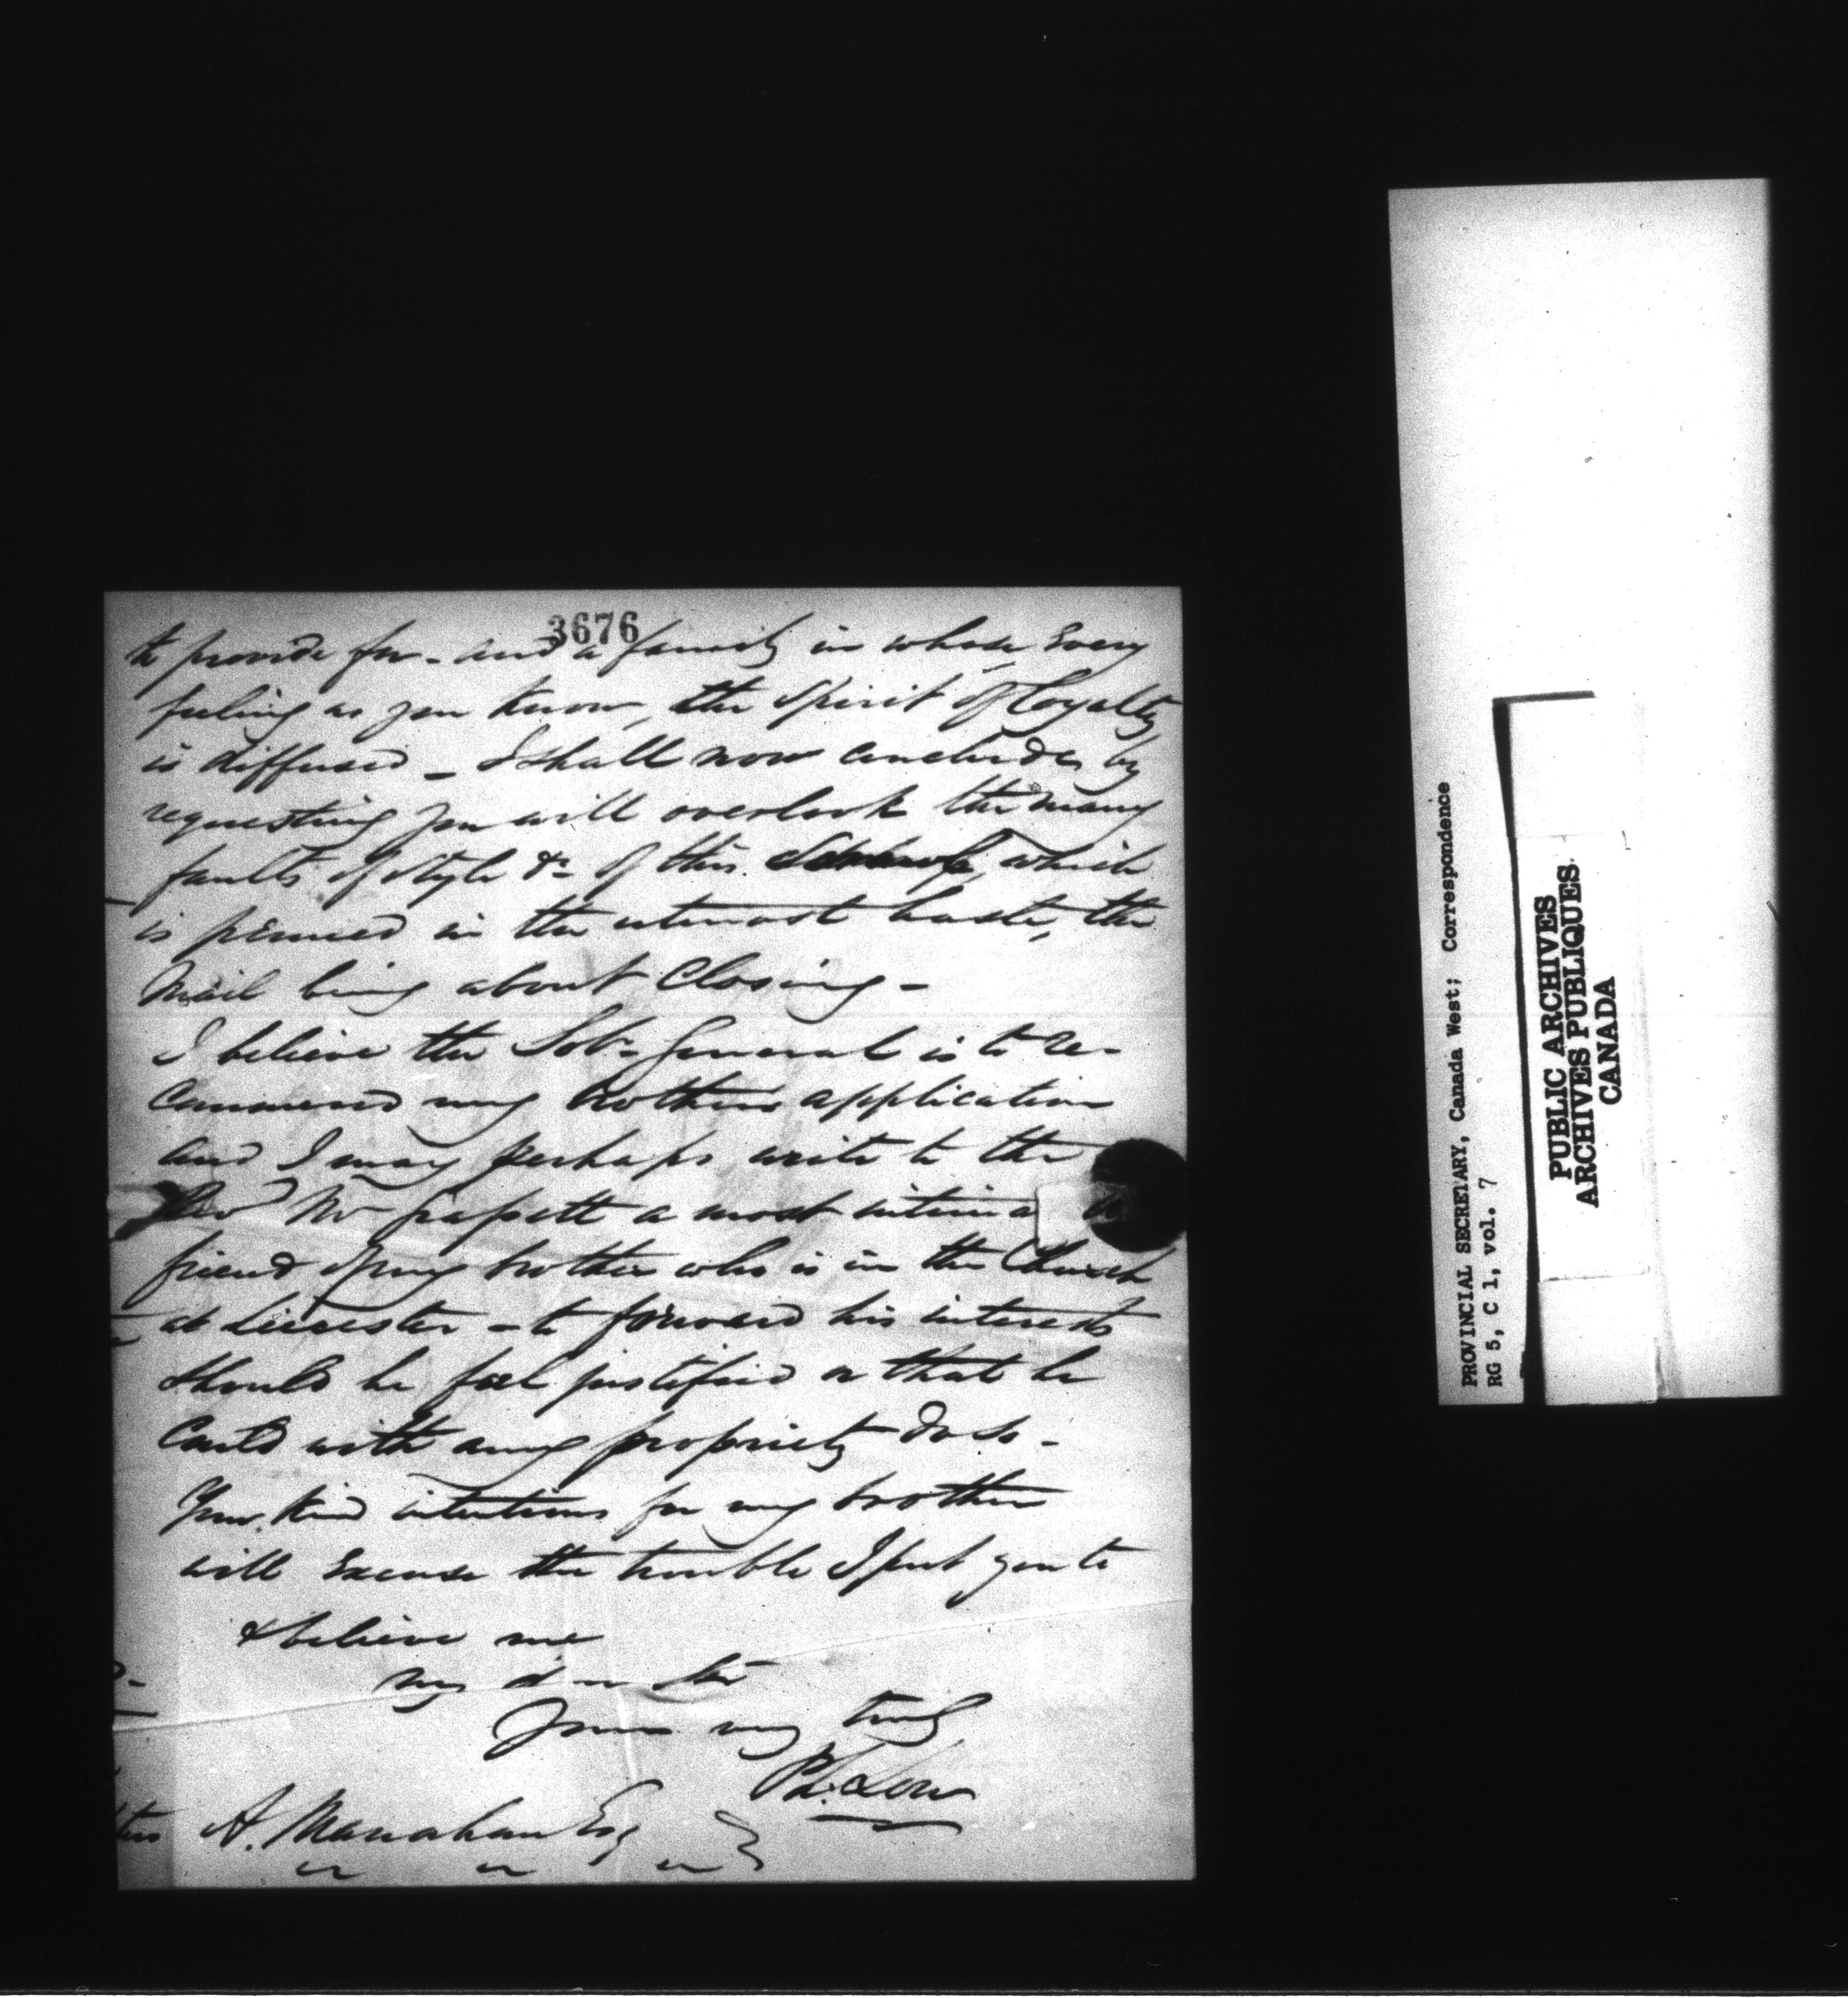 3676
to provide for - and a family in whose Every
feeling as you know, the spirit of Loyalty
is diffused - I shall now conclude by
requesting you will overlook the many
faults of style &c of this which
is penned in the utmost haste, the
Mail being about Closing -
I believe the Solr General is to re-
commend my brothers application
and I may perhaps write to the
Revd Mr a most intima
friend of my brother who is in the Church
at Leicester - to forward his interests
should he feel justified or that he
Could with any propriety do so -
Your kind intentions for my brother
will Excuse the trouble I put you to
& believe me
my dear Sir
Yours very truly
Ph. Low
A. Manahan Esq
PROVINCIAL SECRETARY, Canada West; Correspondence
RG 5, C 1, vol. 7
PUBLIC ARCHIVES
ARCHIVES PUBLIQUES
CANADA